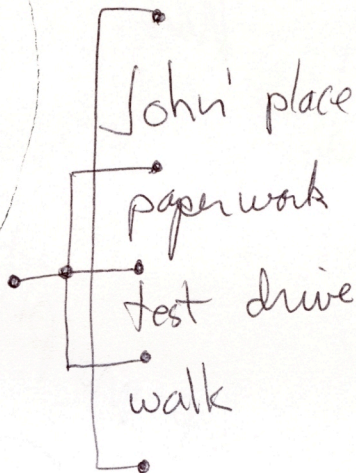 John' place
paperwork
test drive
walk